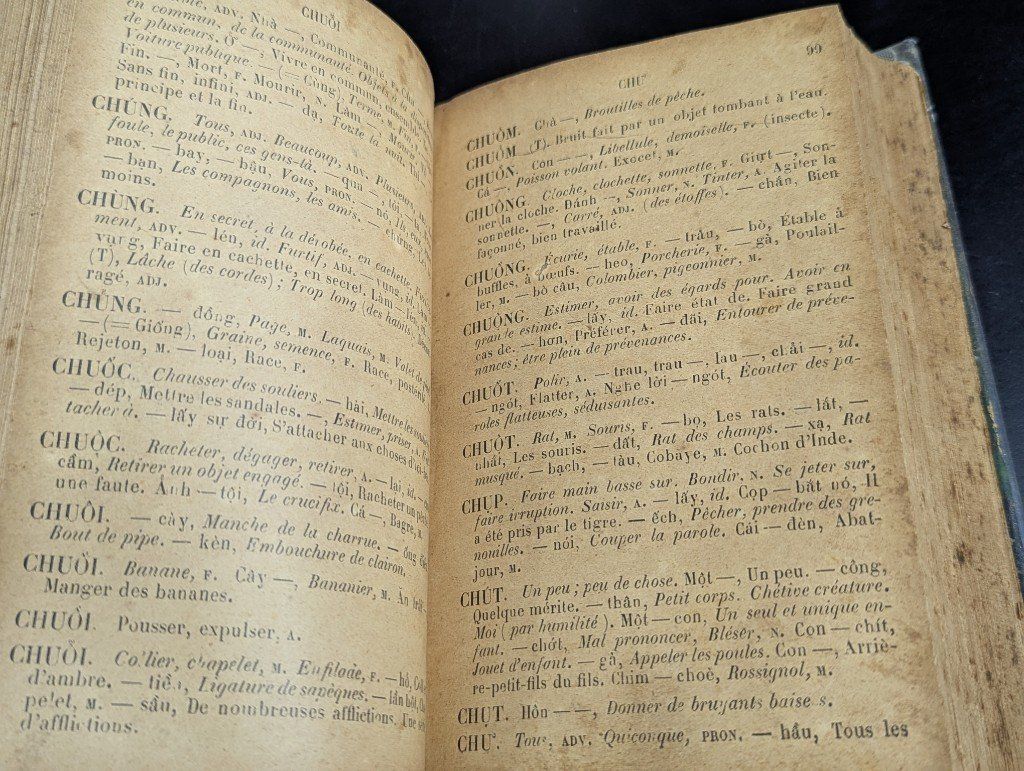 CHUỒI
ADV. Nhà —, Communauté, F.
en commun, de la communauté. Objets à
de plusieurs. Ở —, Vivre en commun, ensemble
Voiture publique. — (= Cùng) Terme, M.
Fin. —, Mort, F. Mourir, N. Làm —
Sans fin, infini, ADJ. — dạ, Toute la nuit.
principe et la fin.
CHÚNG. Tous, ADJ. Beaucoup, ADV. Plusieurs
foule, le public, ces gens-là. — qua
PRON. — bay, — bậu, Vous, PRON. — nó, Ils, eux
— bạn, Les compagnons, les amis. — chừng,
moins.
CHÙNG. En secret, à la dérobée, en cachette,
ment, ADV. — lén, id. Furtif, ADJ. — vụng, id.
vụng, Faire en cachette, en secret. Làm — lén, id.
(T), Lâche (des cordes); Trop long (des habits).
ragé, ADJ.
CHỦNG. — đồng, Page, M. Laquais, M. Valet de
— (= Giống), Graine, semence, F. Race, postérité
Rejeton, M. — loại, Race, F.
CHUỐC. Chausser des souliers. — hài, Mettre les
— dép, Mettre les sandales. —, Estimer, priser, A.
tacher à. — lấy sự đời, S'attacher aux choses d'ici
CHUỘC. Racheter, dégager, retirer, A. — lại, id. —
cầm, Retirer un objet engagé. — tội, Racheter un
une faute. Ảnh — tội, Le crucifix. Cá —, Bagre, M.
CHUÔI. — cày, Manche de la charrue. — ống
Bout de pipe. — kèn, Embouchure de clairon.
CHUỐI. Banane, F. Cây —, Bananier, M. Ăn trái
Manger des bananes.
CHUỒI. Pousser, expulser, A.
CHUỖI. Collier, chapelet, M. Enfilade, F. — hổ,
d'ambre. — tiền, Ligature de sapèques. — lần hột,
pelet, M. — sầu, De nombreuses afflictions. Une
d'afflictions.
CHƯ
99
CHUÔM. Chà —, Broutilles de pêche.
CHUỒM (T). Bruit fait par un objet tombant à l'eau.
CHUỒN. Con — —, Libellule, demoiselle, F. (insecte).
Cá —, Poisson volant. Exocet, M.
CHUÔNG. Cloche, clochette, sonnette, F. Giựt —, Son-
ner la cloche. Đánh —, Sonner, N. Tinter, A. Agiter la
sonnette. —, Carré, ADJ. (des étoffes). — chắn, Bien
façonné, bien travaillé.
CHUỒNG. Écurie, étable, F. — trâu, — bò, Étable à
buffles, à bœufs. — heo, Porcherie, F. — gà, Poulail-
ler, M. — bồ câu, Colombier, pigeonnier, M.
CHUỘNG. Estimer, avoir des égards pour. Avoir en
grande estime. — lấy, id. Faire état de. Faire grand
cas de. — hơn, Préférer, A. — đãi, Entourer de préve-
nances; être plein de prévenances.
CHUỐT. Polir, A. — trau, trau —, lau —, chải —, id.
— ngót, Flatter, A. Nghe lời — ngót, Écouter des pa-
roles flatteuses, séduisantes.
CHUỘT. Rat, M. Souris, F. — bọ, Les rats. — lắt, —
nhắt, Les souris. — đất, Rat des champs. — xạ, Rat
musqué. — bạch, — tàu, Cobaye, M. Cochon d'Inde.
CHỤP. Faire main basse sur. Bondir. N. Se jeter sur,
faire irruption. Saisir, A. — lấy, id. Cọp — bắt nó, Il
a été pris par le tigre. — ếch, Pêcher, prendre des gre-
nouilles. — nói, Couper la parole. Cái — đèn, Abat-
jour, M.
CHÚT. Un peu; peu de chose. Một —, Un peu. — công,
Quelque mérite. — thân, Petit corps. Chétive créature.
Moi (par humilité). Một — con, Un seul et unique en-
fant. — chót, Mal prononcer, Bléser, N. Con — chít,
Jouet d'enfant. — gà, Appeler les poules. Con —, Arriè-
re-petit-fils du fils. Chim — choè, Rossignol, M.
CHỤT. Hôn — —, Donner de bruyants baisers.
CHƯ. Tous, ADV. Quiconque, PRON. — hầu, Tous les